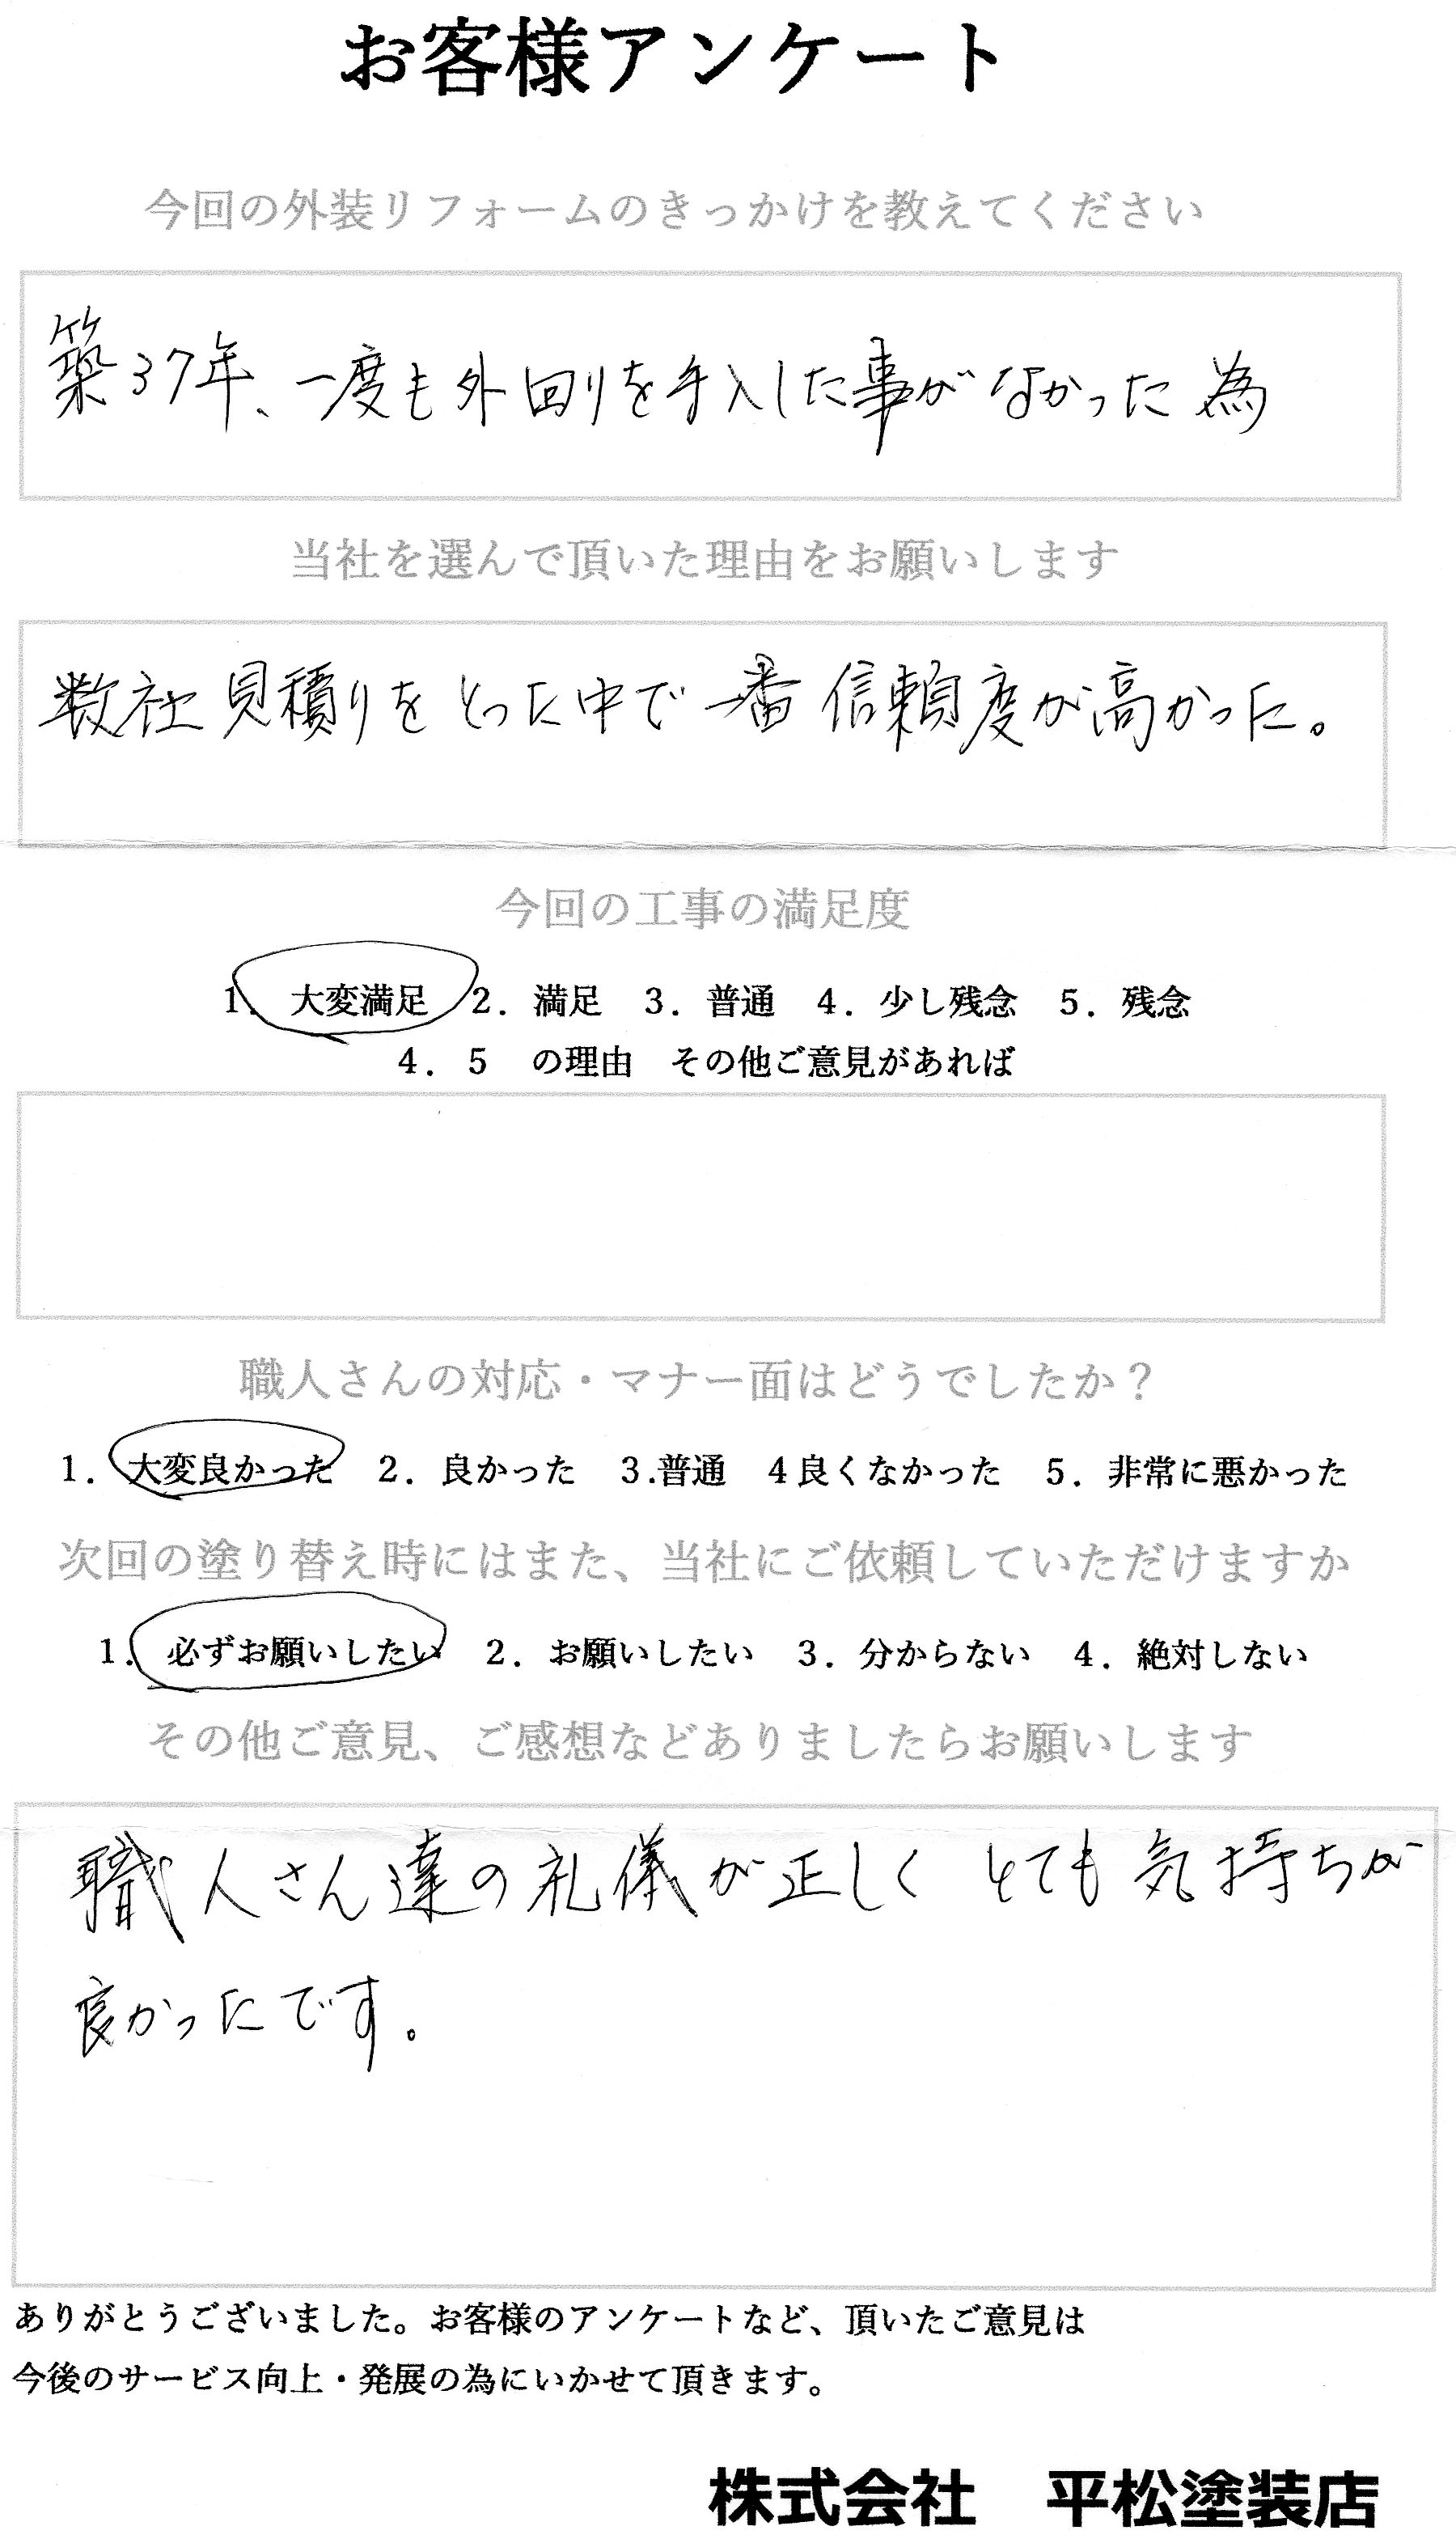 お客様アンケート
今回の外装リフォームのきっかけを教えてください
築37年、一度も外回りを手入した事がなかった為
当社を選んで頂いた理由をお願いします
数社見積りをとった中で一番信頼度が高かった。
今回の工事の満足度
1. 大変満足 2. 満足 3. 普通 4. 少し残念 5. 残念
4. 5 の理由 その他ご意見があれば
職人さんの対応・マナー面はどうでしたか？
1. 大変良かった 2. 良かった 3.普通 4良くなかった 5. 非常に悪かった
次回の塗り替え時にはまた、当社にご依頼していただけますか
1. 必ずお願いしたい 2. お願いしたい 3. 分からない 4. 絶対しない
その他ご意見、ご感想などありましたらお願いします
職人さん達の礼儀が正しくとても気持ちが
良かったです。
ありがとうございました。お客様のアンケートなど、頂いたご意見は
今後のサービス向上・発展の為にいかせて頂きます。
株式会社 平松塗装店